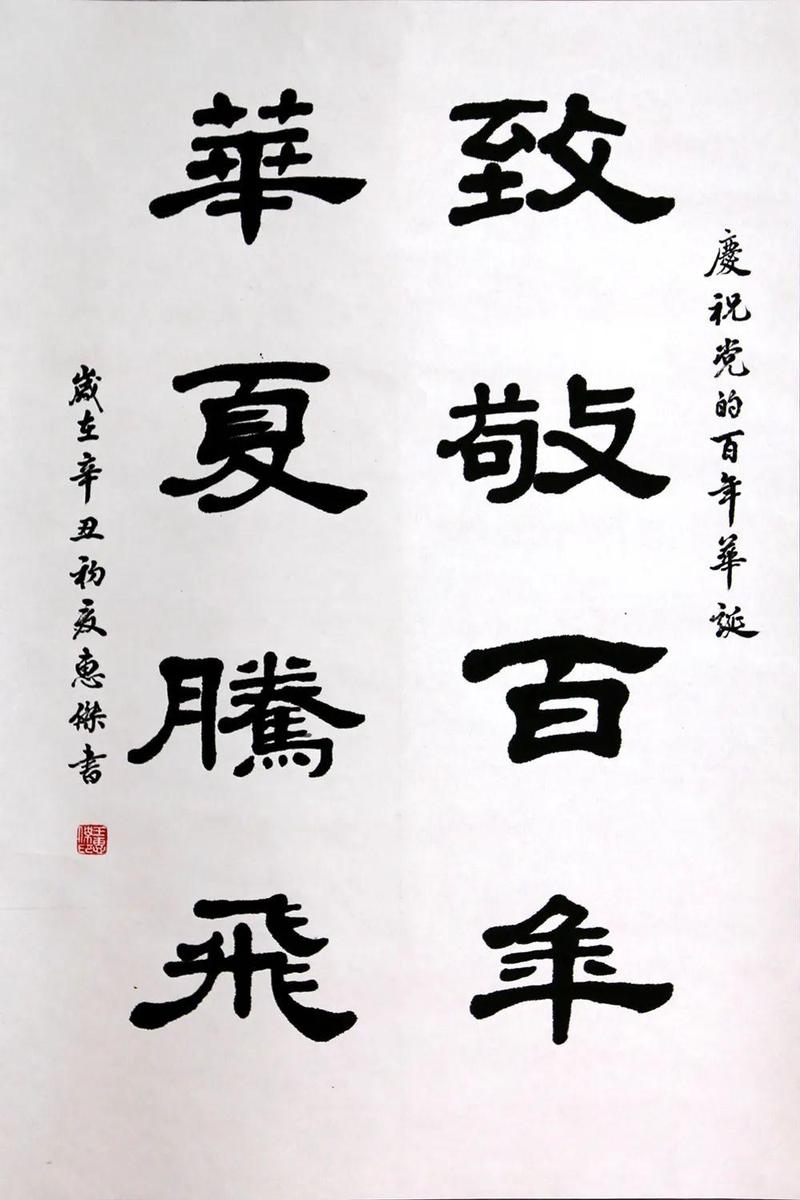 慶祝党的百年華誕
致敬百年
華夏騰飛
歲在辛丑初夏惠傑書
王惠傑印